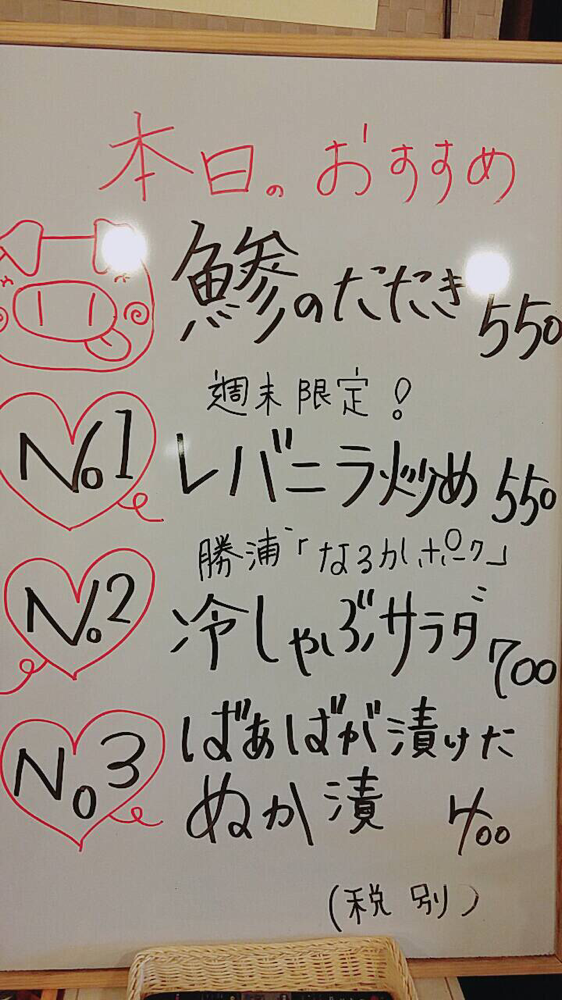 本日のおすすめ
鯵のたたき 550
週末限定!
No1 レバニラ炒め 550
勝浦「なるかポーク」
No2 冷しゃぶサラダ 700
No3 ばあばが漬けた
ぬか漬 400
(税別)